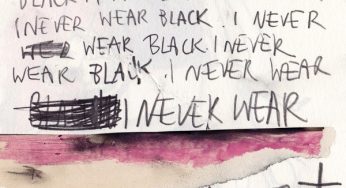 BLACK. I NEVER
I NEVER WEAR BLACK. I NEVER
WEAR BLACK. I NEVER
WEAR BLACK. I NEVER WEAR
I NEVER WEAR